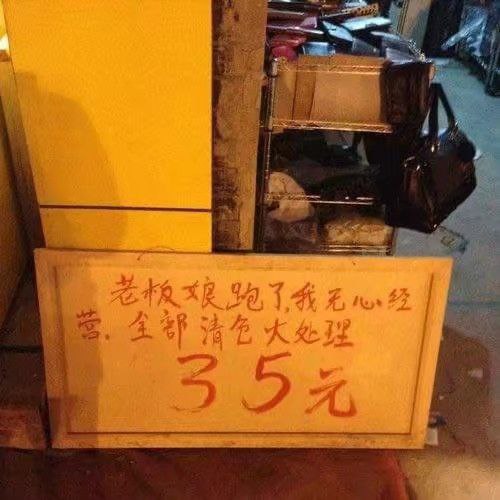 老板娘跑了,我无心经
营,全部清包大处理
35元